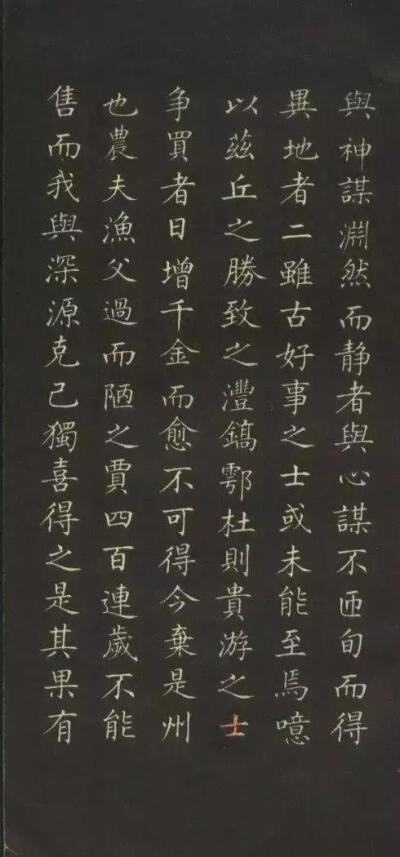 與神謀淵然而静者與心謀不匝旬而得
異地者二雖古好事之士或未能至焉噫
以茲丘之勝致之灃鎬鄠杜則貴游之士
争買者日增千金而愈不可得今棄是州
也農夫漁父過而陋之賈四百連歲不能
售而我與深源克己獨喜得之是其果有